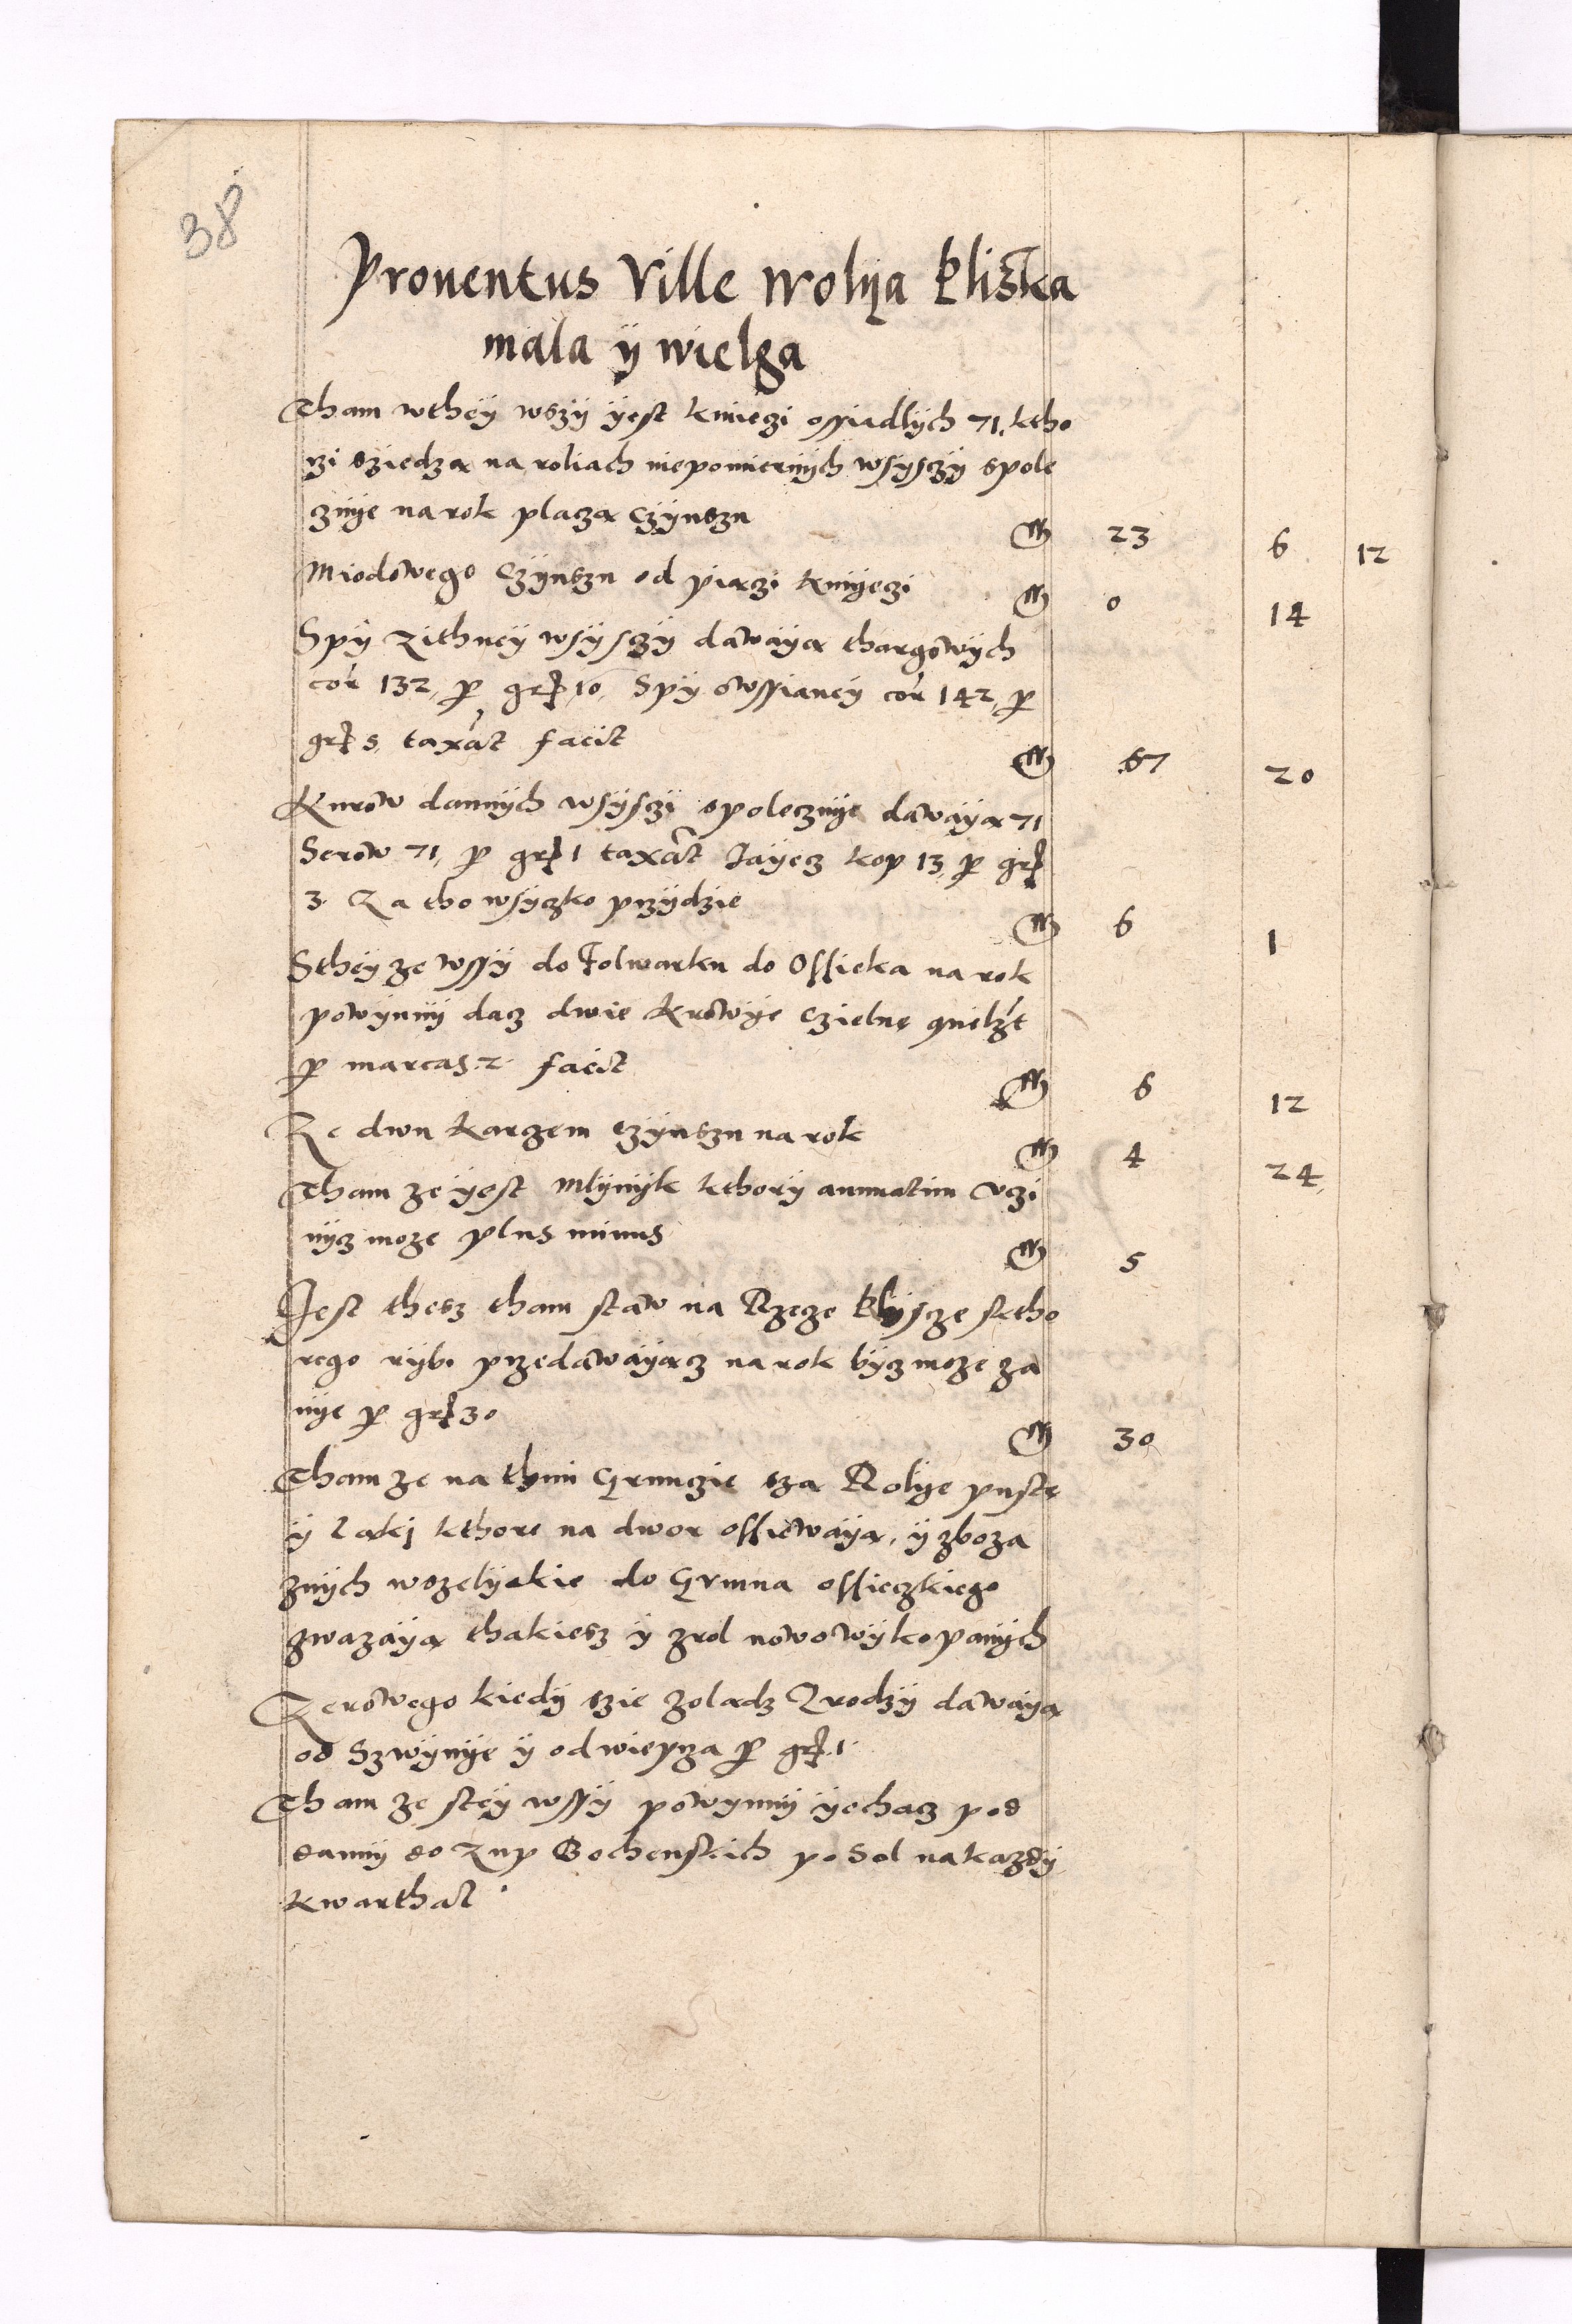 38
Proventus Ville Wolya Kliszka
mala ÿ wielga
Tham wthëy wszÿ ÿest kmieczi ossiadlÿch 71, ktho
rzi sziedza na roliach niepomiernÿch wsÿsczÿ spole
cznÿe na rok placza Czÿnszu M 23 6 12
Miodowego Czÿnszu od piaczi kmÿeczi M 0 14
Spÿ zithneÿ wsÿsczÿ dawaÿa thargowÿch
cor 132, per grß 10, Spÿ owssianeÿ cor 142, per
grß 5, taxat facit M 67 20
Kurow dannÿch wsÿsczÿ spolecznÿe dawaÿa 71
Serow 71, per grß 1 taxat Jaÿecz kop 13, per grß
3. Za tho wsÿczko przÿdzie M 6 1
Stheÿ ze wssÿ do Folwarku do Ossieka na rok
powÿnnÿ dacz dwie krowÿe czielne quelzt
per marcas 2 facit M 6 12
Ze dwu karczem czÿnszu na rok M 4 24
Tham ze ÿest mlÿnÿk kthorÿ annuatim vczi
nÿcz moze plus minus M 5
Jest thesz tham staw na Rzeze Klÿscze sctho
rego rÿbi przedawaÿacz na rok bÿcz moze za
nÿe per grß 30 M 30
Tham ze na thÿm Grunczie sza Rolÿe puste
ÿ laki kthore na dwor ossiewaÿa, ÿ zboza
znÿch wszelÿakie do Gumna ossieczkiego
zwazaÿa thakiesz ÿ zrol nowowÿkopanÿch
Zerowego kiedÿ szie zoladz Zrodzÿ dawaÿa
od Szwÿnÿe ÿ od wieprza per grß 1
Tham ze steÿ wssÿ powÿnnÿ ÿechacz pod
danni do zup Bochenskich po Sol na kazdÿ
kwarthal